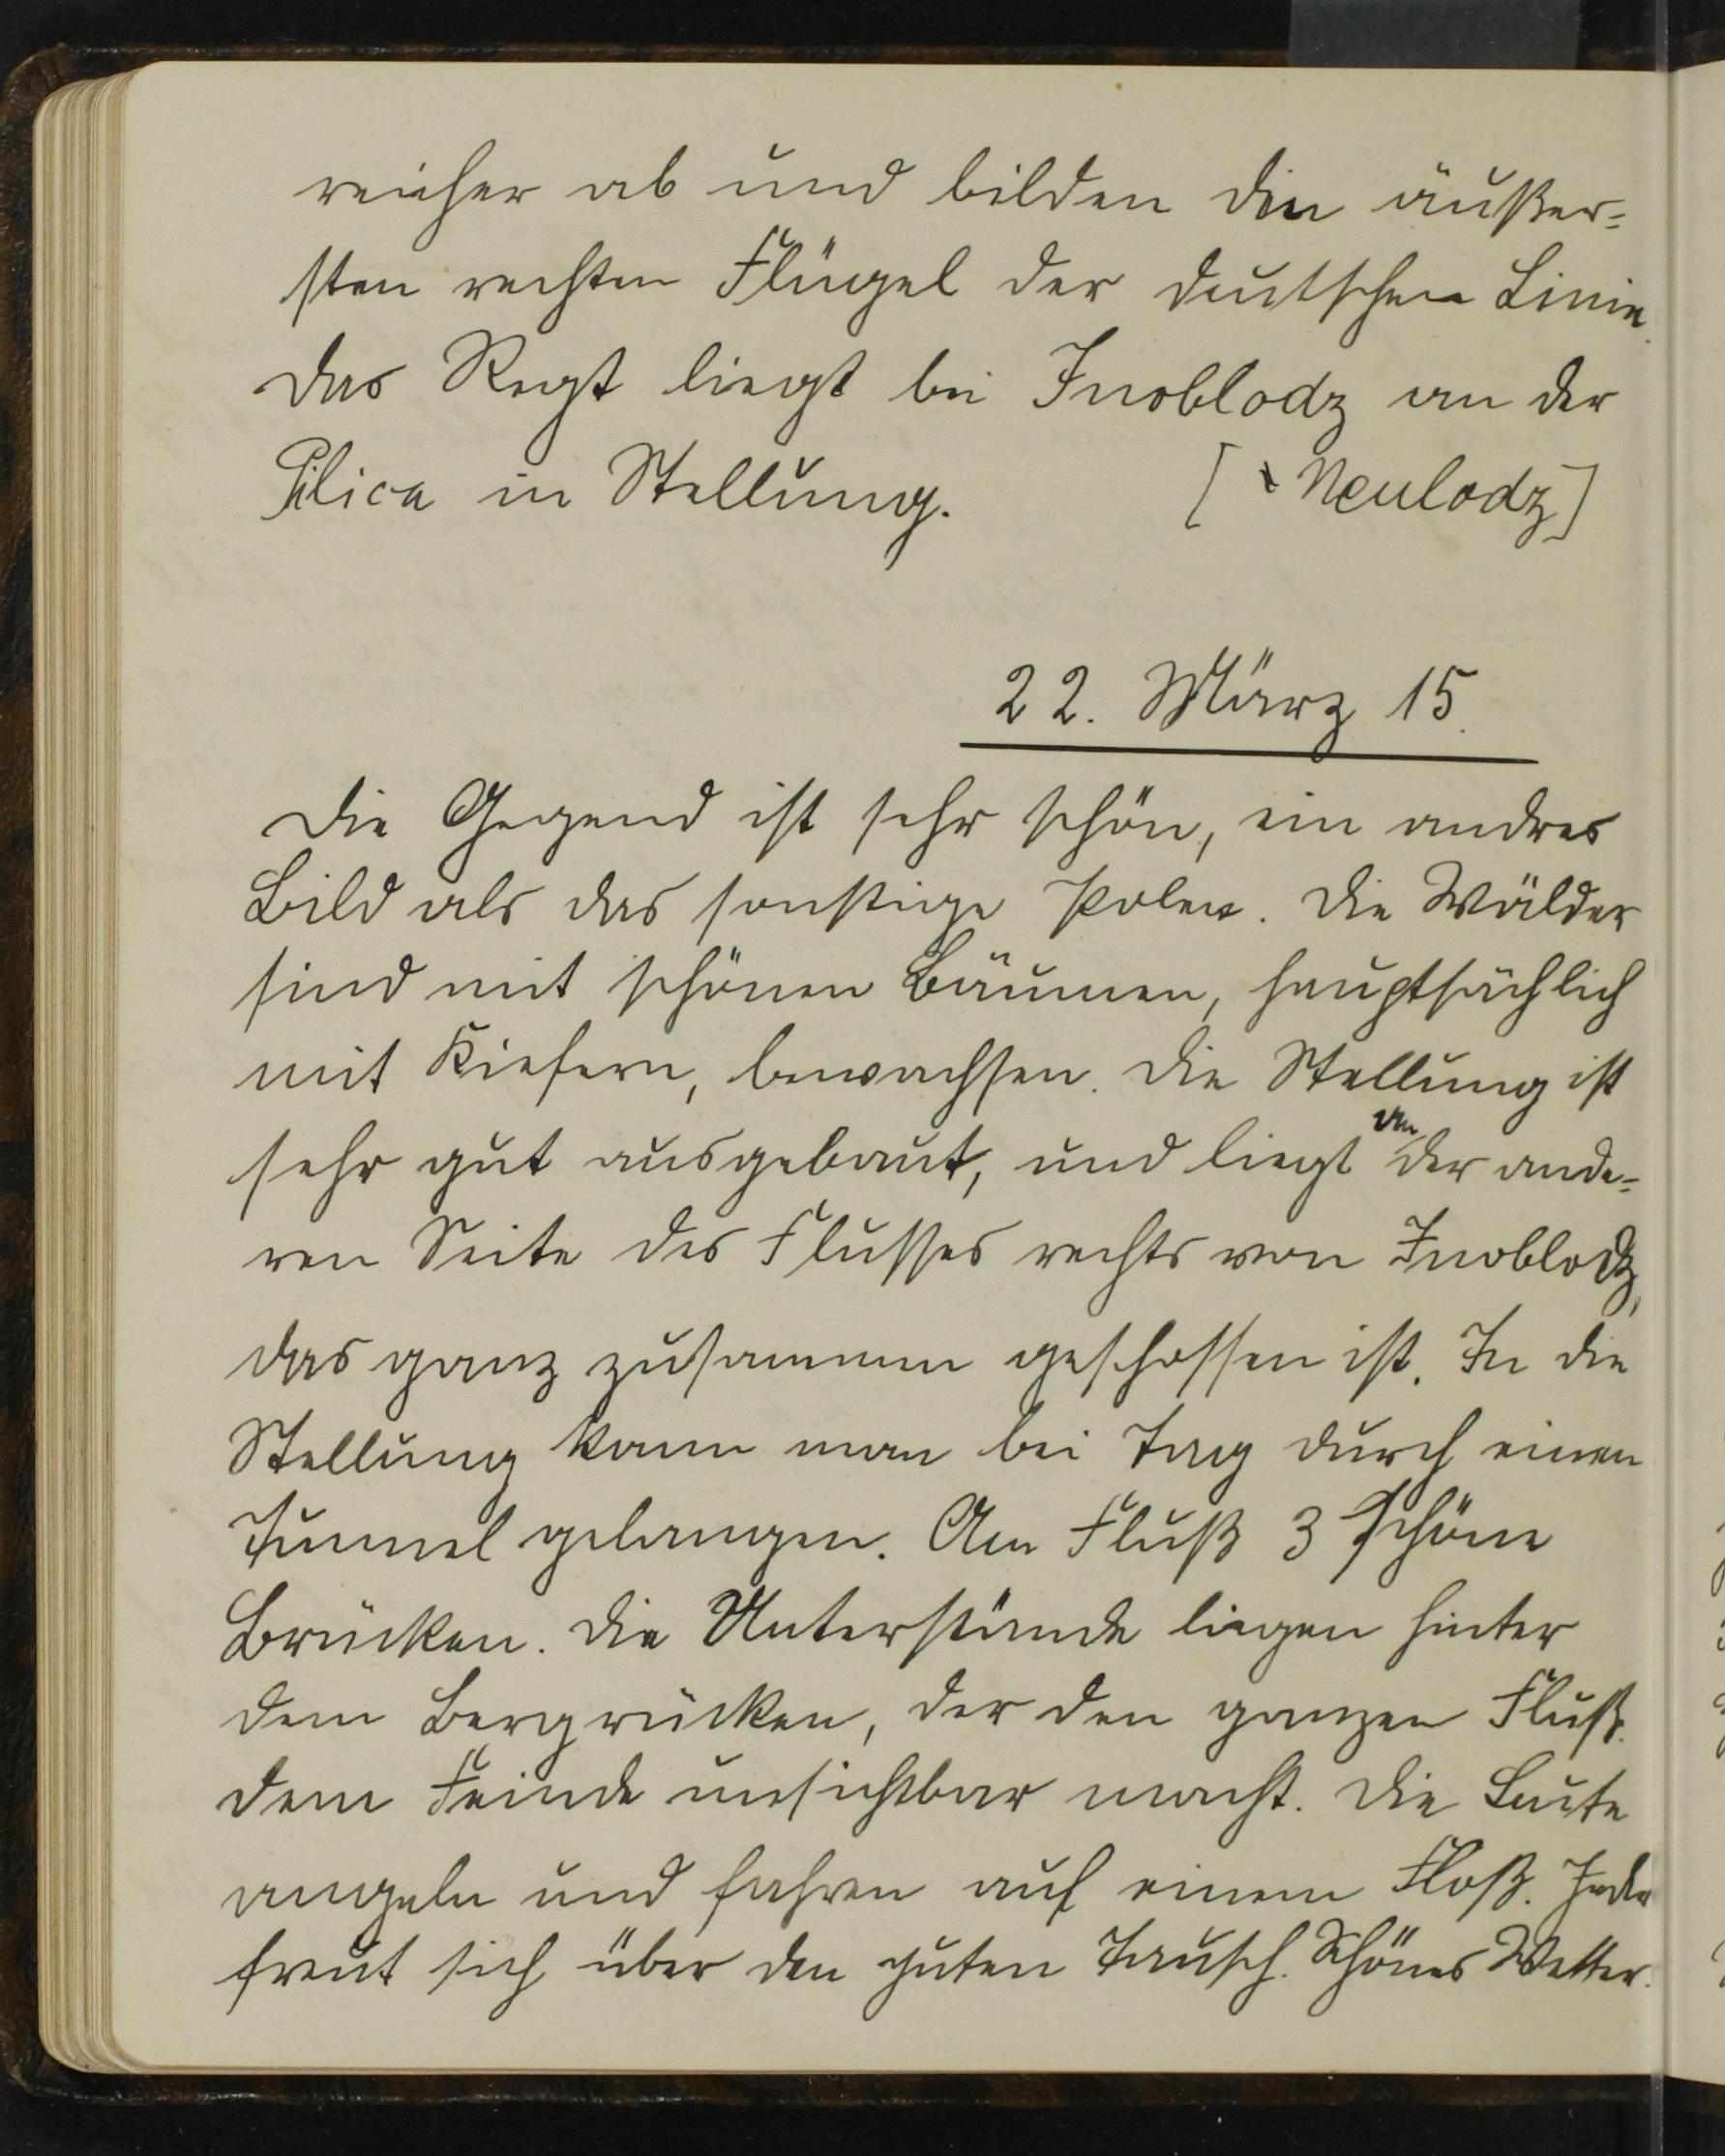 reicher ab und bilden den äußer=
sten rechten Flügel der deutschen Linie.
Das Regt liegt bei Inoblodz an der
Pilica in Stellung. [Neulodz]
22. März 15.
Die Gegend ist sehr schön, ein andres
Bild als das sonstige Polen. Die Wälder
sind mit schönen Bäumen, hauptsächlich
mit Kiefern, bewachsen. Die Stellung ist
sehr gut ausgebaut, und liegt an der ande=
ren Seite des Flusses rechts von Inoblodz,
das ganz zusammen geschossen ist. In die
Stellung kann man bei Tag durch einen
Tunnel gelangen. Am Fluß 3 schöne
Brücken. Die Unterstände liegen hinter
dem Bergrücken, der den ganzen Fluß
dem Feinde unsichtbar macht. Die Leute
angeln und fahren auf einem Floß. Jeder
freut sich über den guten Tausch. Schönes Wetter.